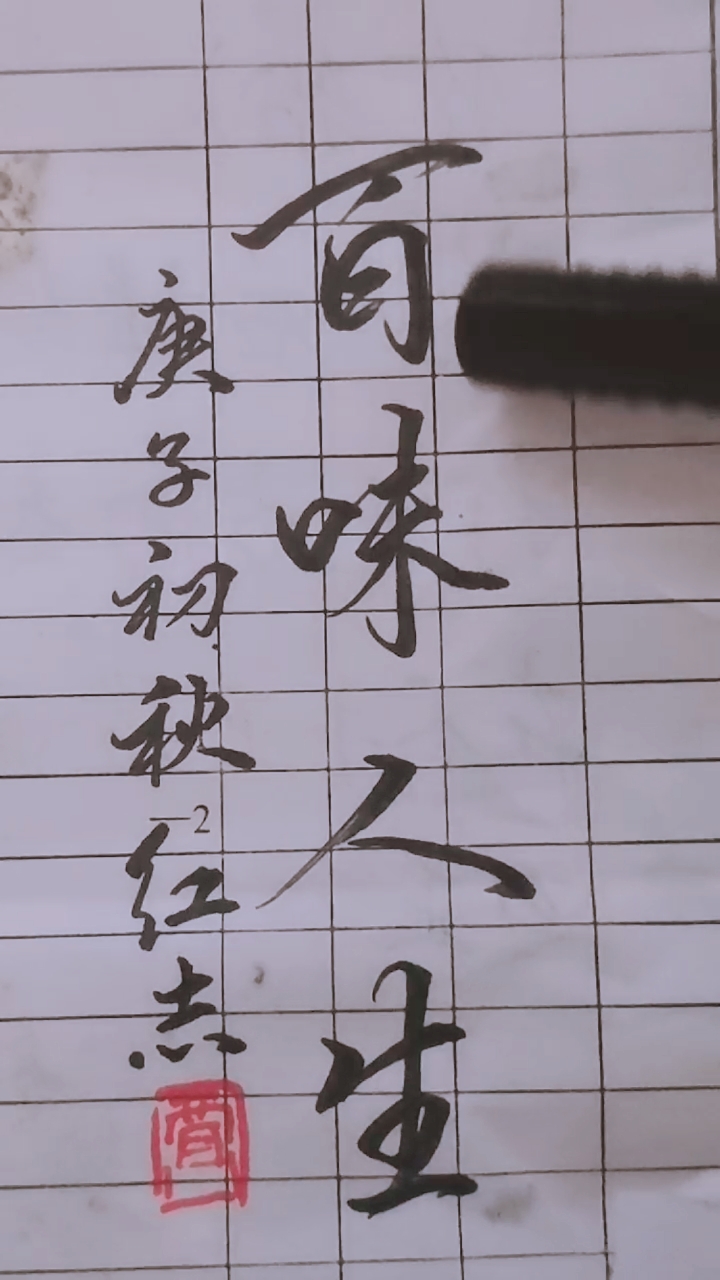 百味人生
庚子初秋红志
—2